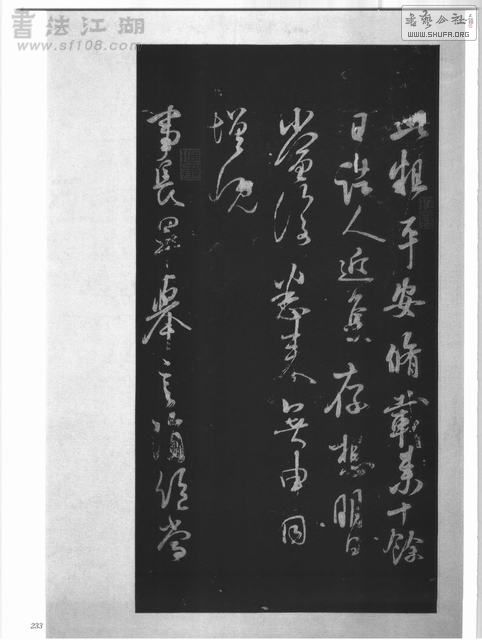 書法江湖
www.sf108.com
書藝公社
WWW.SHUFA.ORG
此粗平安脩載來十餘
日諸人近集存想明日
當復悉來無由同
增慨
事長
233